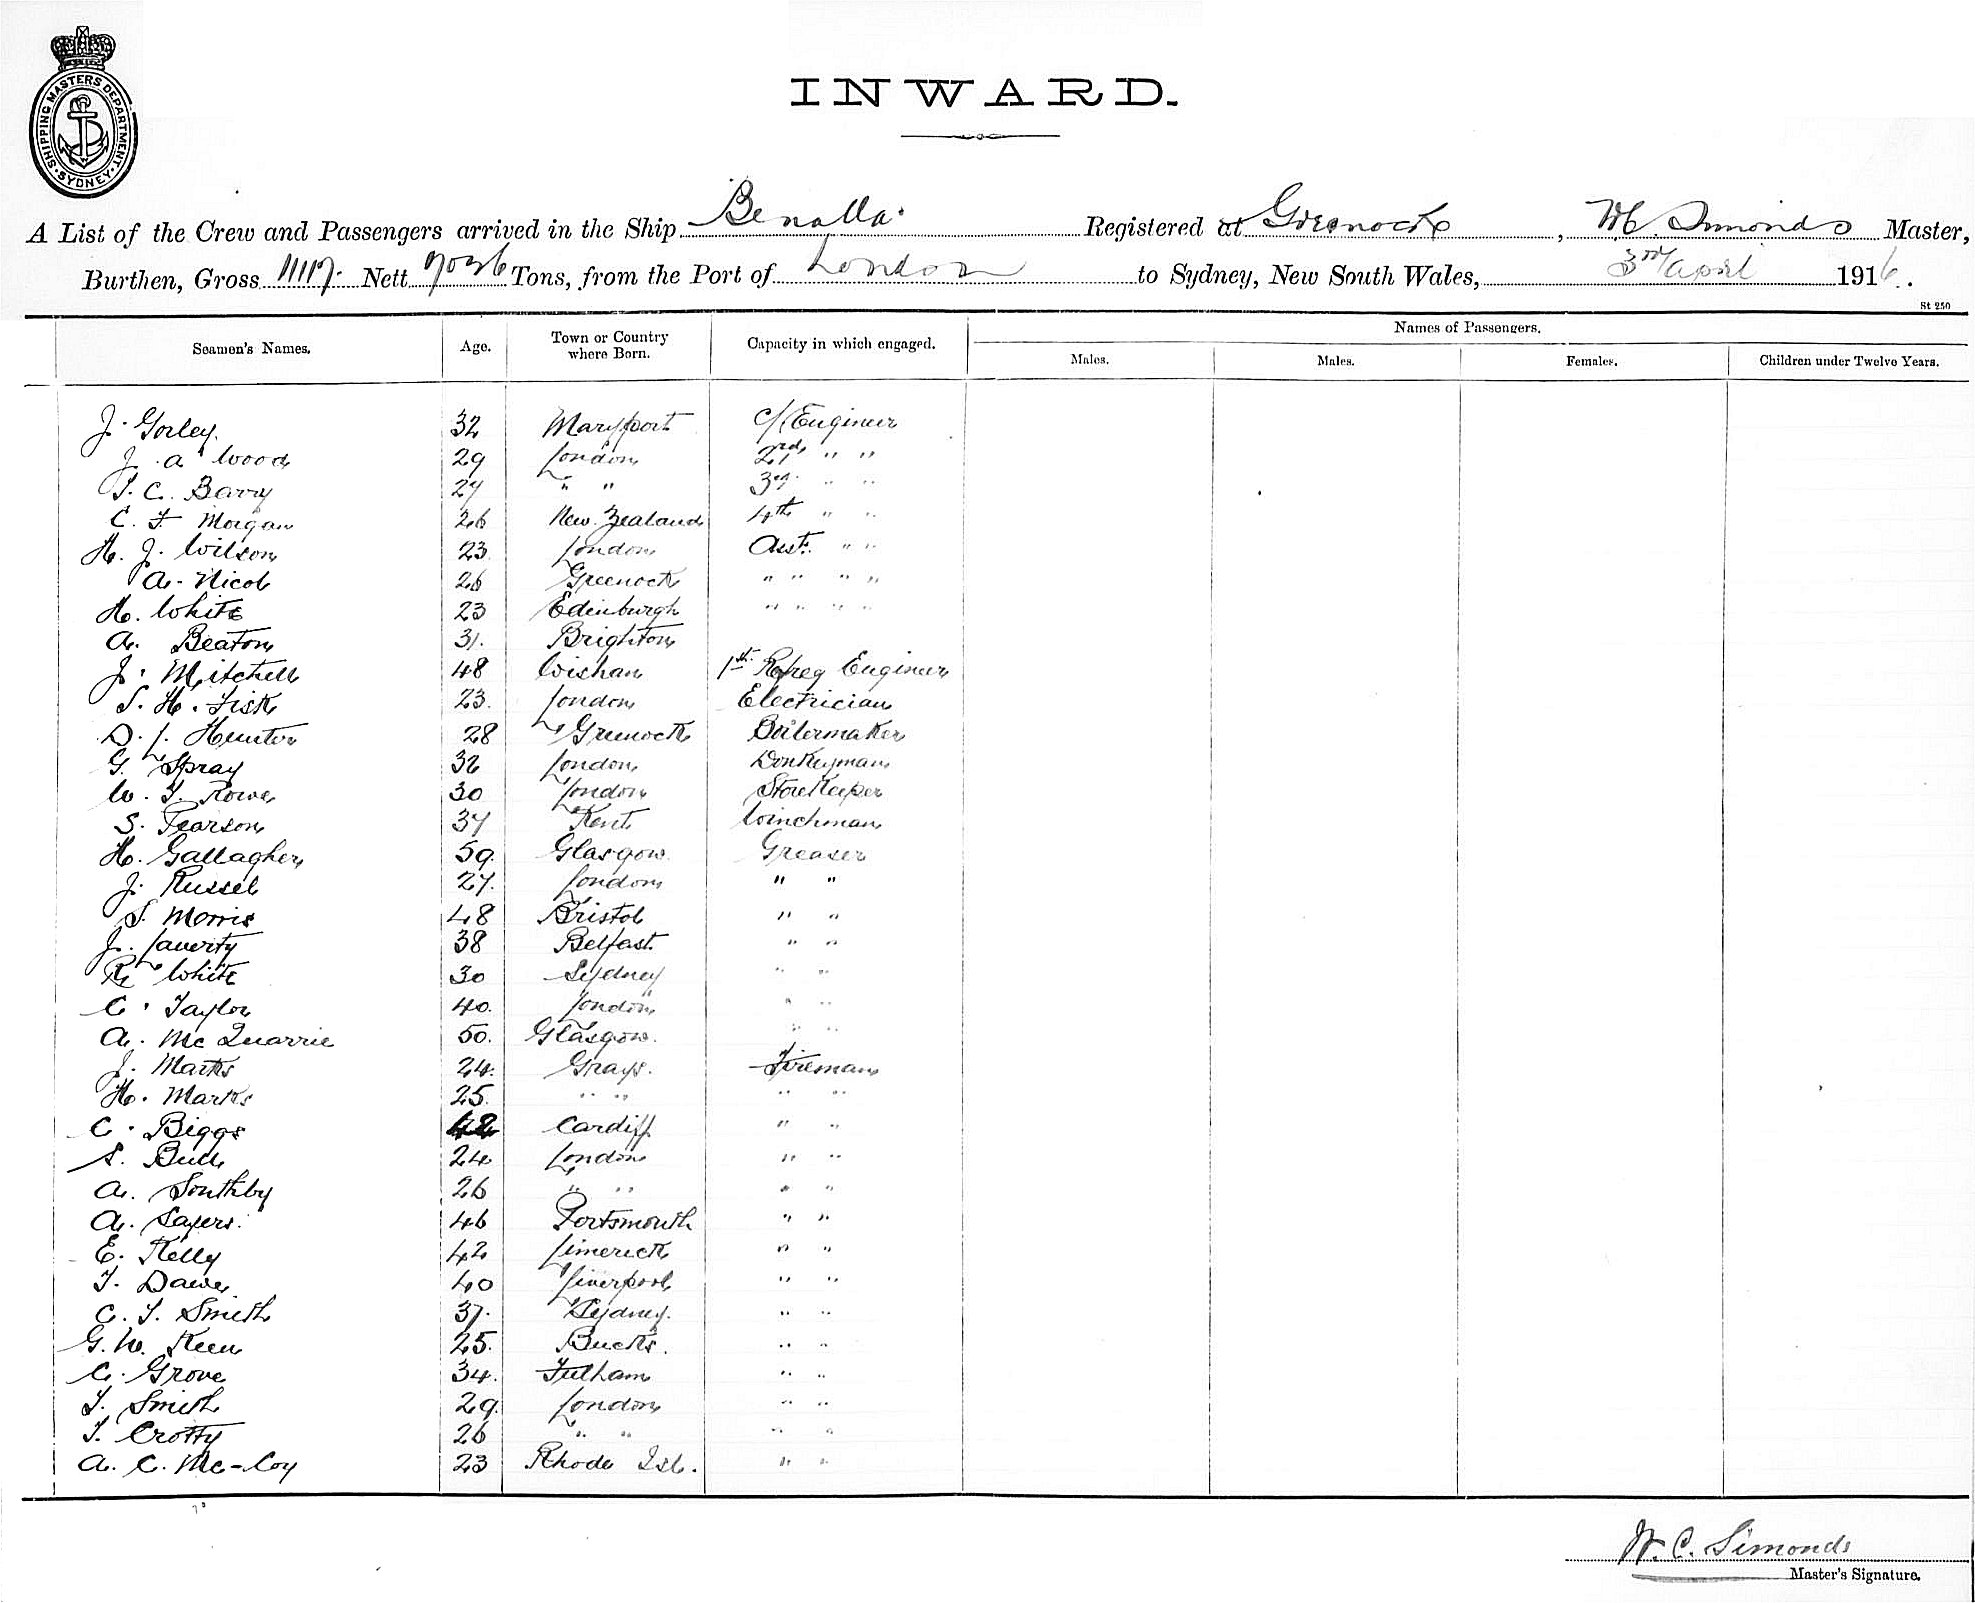 SHIPPING MASTERS DEPARTMENT · SYDNEY ·
INWARD.
A List of the Crew and Passengers arrived in the Ship Benalla. Registered at Greenock, W.C. Simonds Master,
Burthen, Gross 11117. Nett 7036 Tons, from the Port of London to Sydney, New South Wales, 3rd April 1916.
St 250
Seamen's Names. Age. Town or Country where Born. Capacity in which engaged. Names of Passengers.
Males. Males. Females. Children under Twelve Years.
J. Gorley. 32 Maryport C/Engineer
J. A Wood 29 London 2nd " "
P. C. Barry 27 " " 3rd " "
C. F Morgan 26 New Zealand 4th " "
H. J. Wilson 23 London Asst. " "
A. Nicol 26 Greenock " " " "
H. White 23 Edinburgh " " " "
A. Beaton 31. Brighton
J. Mitchell 48 Wishaw 1st Refreg Engineer
S. H. Fisk 23. London Electrician
D. J. Hunter 28 Greenock Boilermaker
G. Spray 32 London Donkeyman
W. T. Rowe 30 London Storekeeper
S. Pearson 37 Kent Winchman
H. Gallagher 59. Glasgow. Greaser
J. Russel 27. London " "
S. Morris 48 Bristol " "
J. Laverty 38 Belfast. " "
R. White 30 Sydney " "
C. Taylor 40. London " "
A. McQuarrie 50. Glasgow. " "
J. Marks 24. Grays. Fireman
H. Marks 25. " " " "
C. Biggs 42 Cardiff " "
S. Bull 24 London " "
A. Southby 26 " " " "
A. Sayers. 46 Portsmouth " "
E. Kelly 42 Limerick " "
T. Dawe 40 Liverpool " "
C. T. Smith 37. Sydney. " "
G. W. Keen 25. Bucks. " "
C. Grove 34. Fulham " "
T. Smith 29. London " "
T. Crotty 26 " " " "
A. C. Mc-Coy 23 Rhode Isl. " "
W. C. Simonds
Master's Signature.